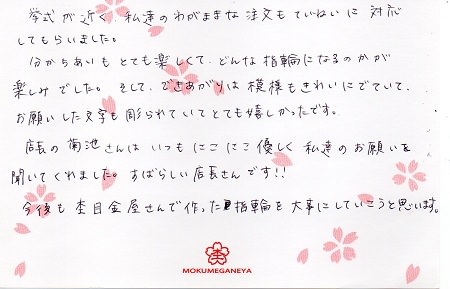 挙式が近く、私達のわがままな注文もていねいに対応
してもらいました。
分からあいもとても楽しくて、どんな指輪になるのかが
楽しみでした。そして、できあがりは模様もきれいにでていて、
お願いした文字も彫られていてとても嬉しかったです。
店長の菊池さんはいつもにこにこ優しく私達のお願いを
聞いてくれました。すばらしい店長さんです!!
今後も杢目金屋さんで作った指輪を大事にしていこうと思います。
杢
MOKUMEGANEYA